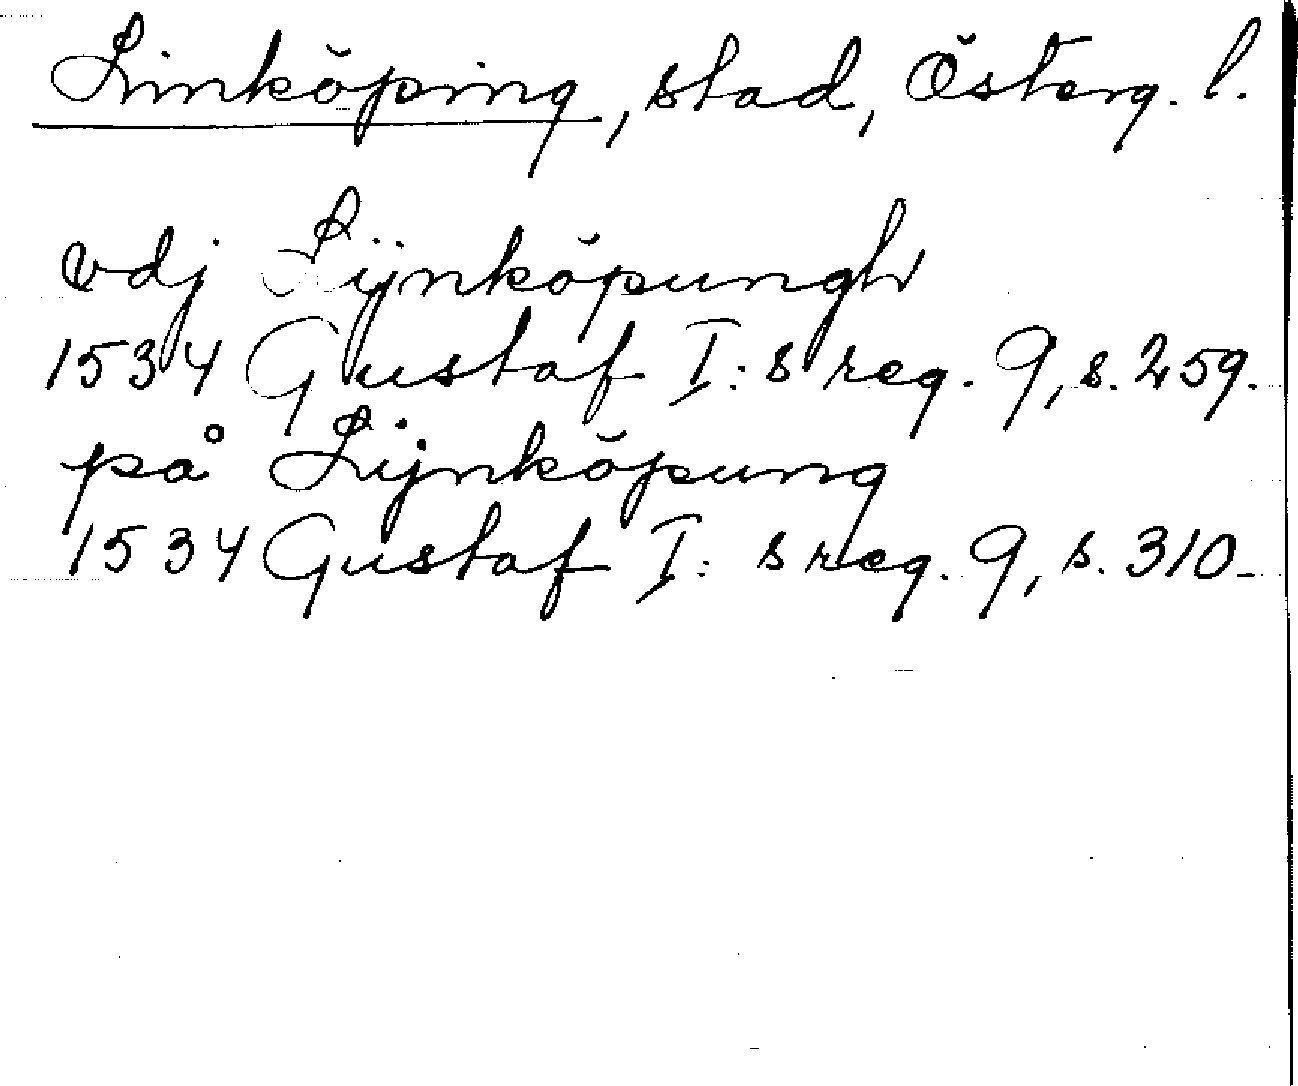 Linköping, stad, Österg. l.
vdj Lijnköpungh
1534 Gustaf I:s reg. 9, s. 259.
på Lijnköpung
1534 Gustaf I:s reg. 9, s. 310.